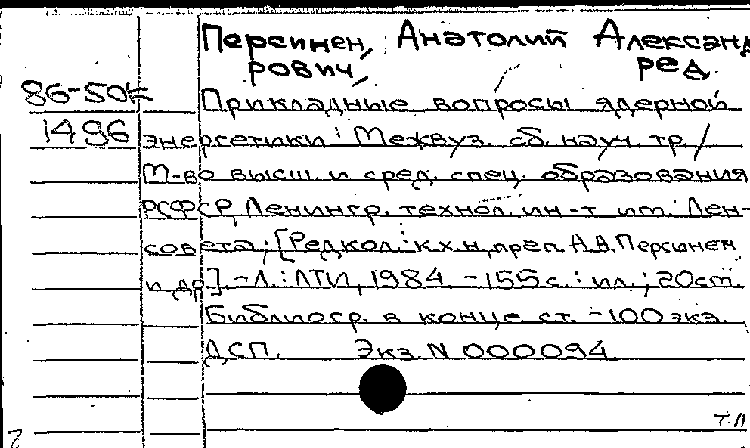 Персинен, Анатолий Александ
рович, ред.
86-504
Прикладные вопросы ядерной
1496 энергетики: Межвуз. сб. науч. тр./
М-во высш. и сред. спец. образования
РСФСР, Ленингр. технол. ин-т им. Лен-
совета; [Редкол.: к.х.н, преп. А.А. Персинен
и др]. -Л.: ЛТИ, 1984. -155с.: ил.; 20см.
Библиогр. в конце ст. -100 экз.
ДСП. Экз N 000094
т.п